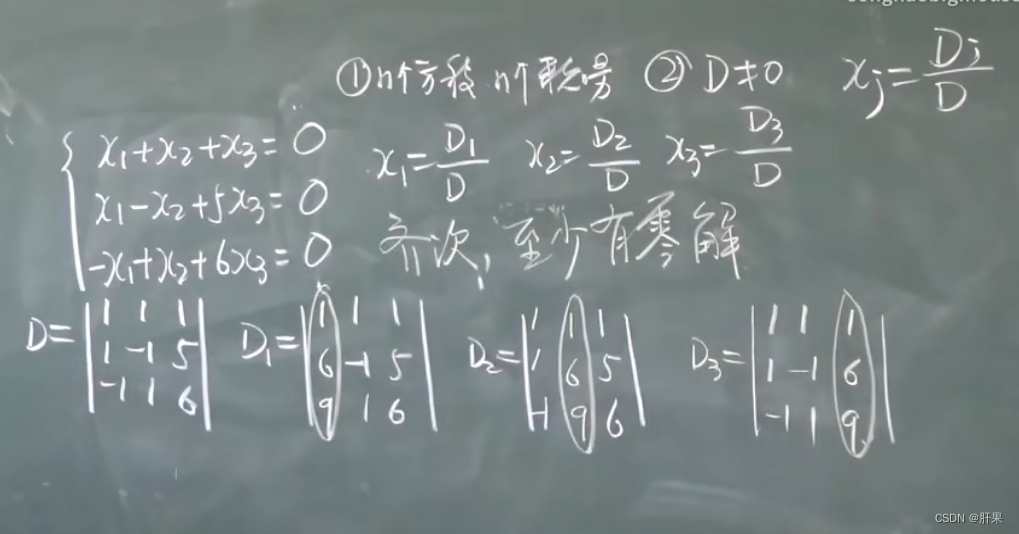 ①n个方程 n个未知量 ②D≠0 xj=Dj/D
x1+x2+x3=0
x1-x2+5x3=0
-x1+x2+6x3=0
x1=D1/D x2=D2/D x3=D3/D
齐次,至少有零解
D=|1 1 1
1 -1 5
-1 1 6|
D1=|1 1 1
6 -1 5
9 1 6|
D2=|1 1 1
1 6 5
-1 9 6|
D3=|1 1 1
1 -1 6
-1 1 9|
CSDN @肝果